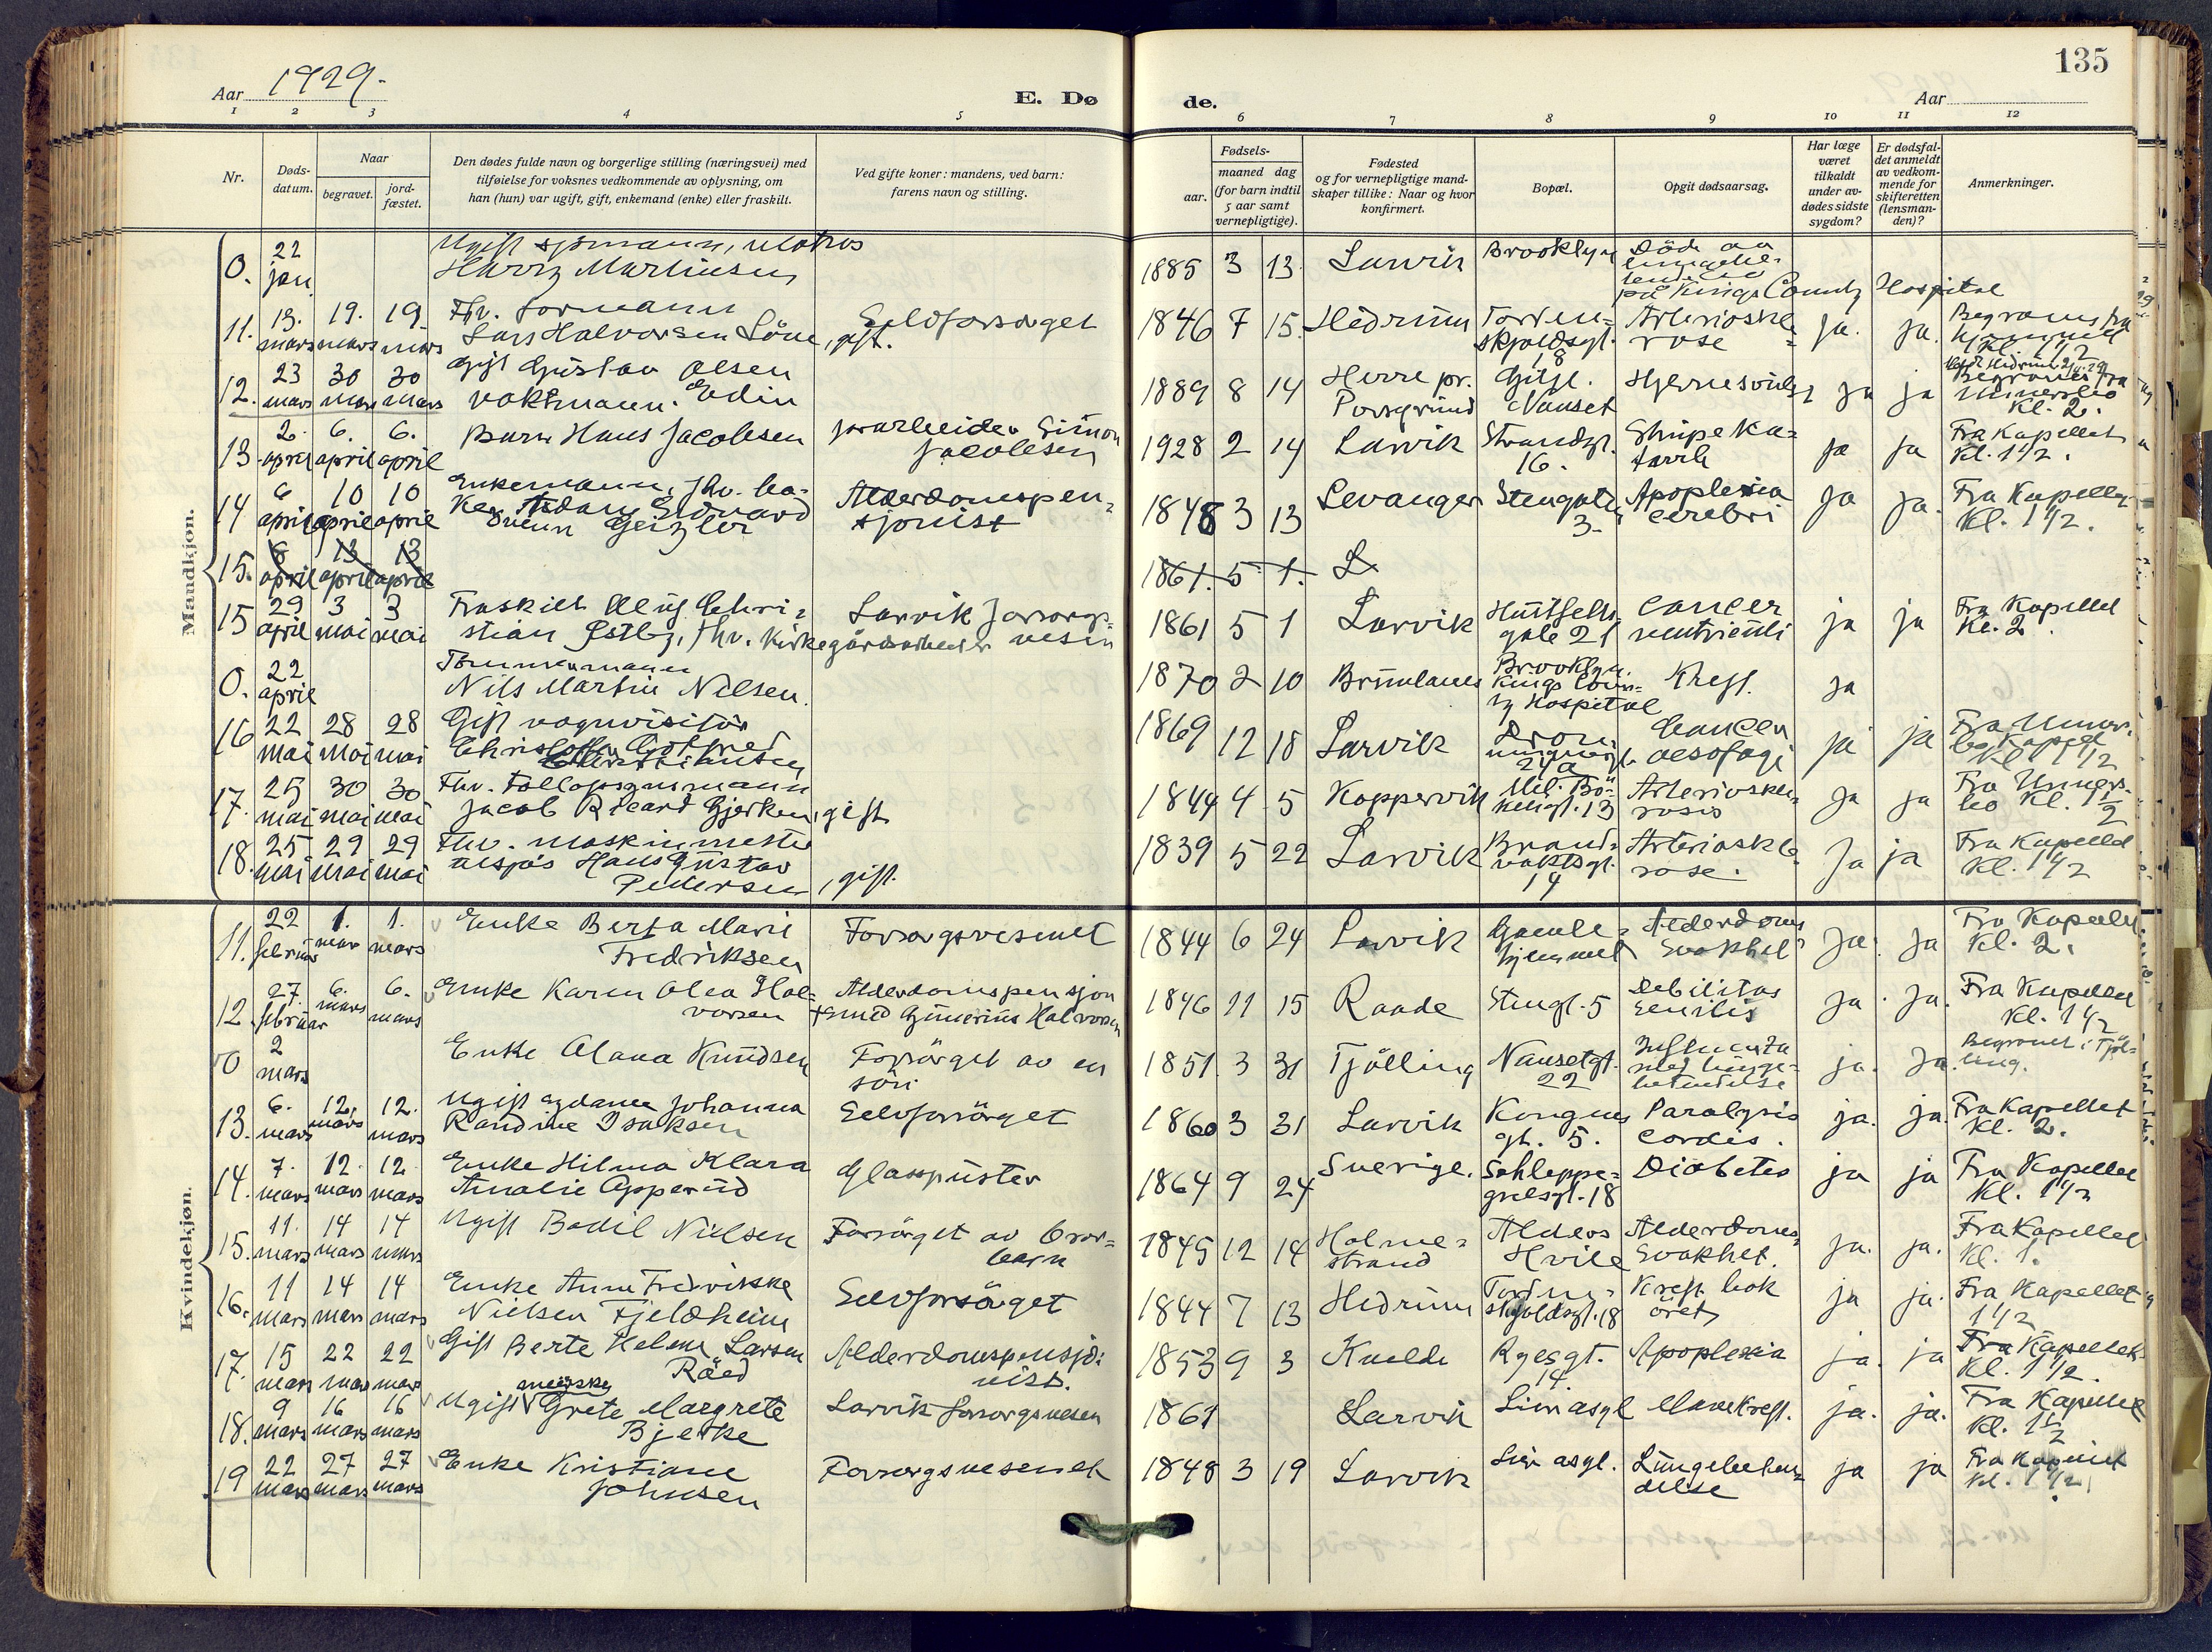 135
Aar 1929.
E. Dø de.
Aar
1 2 3 4 5 6 7 8 9 10 11 12
Nr.
Døds-
datum.
Naar
begravet.
jord-
fæstet.
Den dødes fulde navn og borgerlige stilling (næringsvei) med
tilføielse for voksnes vedkommende av oplysning, om
han (hun) var ugift, gift, enkemand (enke) eller fraskilt.
Ved gifte koner: mandens, ved barn:
farens navn og stilling.
Fødsels-
aar.
maaned dag
(for barn indtil
5 aar samt
vernepligtige).
Fødested
og for vernepligtige mand-
skaper tillike: Naar og hvor
konfirmert.
Bopæl.
Opgit dødsaarsag.
Har læge
været
tilkaldt
under av-
dødes sidste
sygdom?
Er dødsfal-
det anmeldt
av vedkom-
mende for
skifteretten
(lensman-
den)?
Anmerkninger.
Mandkjøn.
0. 22 jan. Ugift sjömann, matros
Harry Martinsen 1885 3 13 Larvik Brooklyn Död av
på Kings County Hospital
11. 13. mars 19. mars 19 mars Fhv. formann
Lars Halvorsen Löne, gift. Selvforsörget 1846 7 15. Hedrum Torden-
skjoldsgt. 18 Arterioskle-
rose ja. ja. Begraves fra
hjemmet
Kl. 1 1/2
12. 23 mars 30 mars 30 mars Gift Gustav Olsen
vaktmann. Edin 1889 8 14 Herre pr.
Porsgrund Gitgt.
Nanset Hjernesvulst ja ja Begraves fra
Undersbo
Kl. 2.
13. 2. april 6. april 6. april Barn Hans Jacobsen Simon
Jacobsen 1928 2 14 Larvik Strandgt.
16. Strupeka-
tarrh ja ja Fra Kapellet
Kl. 1 1/2.
14 6 april 10 april 10 april Enkemann, fhv. ba-
ker Adam Edvard
Svenn Geizler Alderdomspen-
sjonist 1848 3 13 Levanger Stengaten
3. Apoplexia
cerebri ja ja. Fra Kapellet
Kl. 1 1/2.
15. 8 april 13 april 13 april 1861. 5 1. L
15 29 april 3 mai 3 mai Fraskilt Alüf Chri-
stian Östby, fhv. kirkegårdsarbeider Larvik forsorgs-
vesen 1861 5 1 Larvik Huitfelts
gate 21 Cancer
ventriculi ja ja Fra Kapellet
Kl. 2.
0. 22 april Tömmermann
Nils Martin Nilsen. 1870 2 10 Brunlanes Brooklyn.
Kings Coun-
ty Hospital Kreft. ja
16 22 mai 28 mai 28 mai Gift vognvisitör
Christoffer Gotfred
Christiansen 1869 12 18 Larvik Dron-
ningensgt.
24a Cancer
oesofagi ja ja Fra Unders-
bo Kapel
Kl. 1 1/2
17. 25 mai 30 mai 30 mai Fhv. tollopsynsmann
Jacob Ricard Gjerken, gift 1844 4 5 Koppervik Mil. Bö-
kengt. 13 Arterioskle-
rosis ja ja Fra Unders-
bo Kl. 1 1/2
18. 25 mai 29 mai 29 mai Fhv. maskinmester
tilsjøs Hans Gustav
Pedersen, gift. 1839 5 22 Larvik Brand-
vaktsgt.
14 Arterioskle-
rose. Ja ja Fra Kapellet
Kl. 1 1/2
Kvindekjøn.
11. 22 februar 1. mars 1. mars Enke Berta Marie
Fredriksen Forsorgsvesenet 1844 6 24 Larvik Gamle-
hjemmet Alderdoms
svakhet ja. ja Fra Kapellet
Kl. 2.
12. 27. februar 6. mars 6. mars Enke Karen Olea Hal-
vorsen Alderdomspensjon
smed Gunerius Halvorsen 1846 11 15 Raade Stengt. 5 Debilitas
senilis ja. ja. Fra Kapellet
Kl. 1 1/2
0 2 mars Enke Alana Knudsen Forsörget av en
sön 1851. 3 31 Tjölling Nansetgt.
22 Influenza
med lunge-
betendelse ja. ja. Begravet i Tjöl-
ling.
13. 6. mars 12. mars 12. mars Ugift sydame Johanna
Randine Isaksen Selvforsörget 1860 3 31 Larvik Kongens
gt. 5. Paralysis
cordis. ja. ja. Fra Kapellet
Kl. 2.
14. 7. mars 12. mars 12. mars Enke Hilma Klara
Amalie Opperud Glasspuster 1864 9 24 Sverige. Schleppe-
grelsgt. 18 Diabetes ja ja Fra Kapellet
Kl. 1 1/2
15. 11. mars 14 mars 14 mars Ugift Bodil Nielsen Forsörget av bror-
barn 1845 12 14 Holme-
strand Alders
Hvile Alderdoms
svakhet. ja. ja. Fra Kapellet
Kl. 1.
16. 11 mars 14 mars 14 mars Enke Anne Fredrikke
Nielsen Fjeldheim Selvforsörget 1844 7 13 Hedrum Torden-
skjoldsgt. 18 Kreft bak
öret ja ja. Fra Kapellet
1 1/2
17. 15 mars 22 mars 22 mars Gift Berte Helene Larsen
Röed Alderdomspensjo-
nist. 1853 9 3 Kvelde Ryesgt.
14. Apoplexia ja. ja Fra Kapellet
Kl. 1 1/2.
18. 9 mars 16 mars 16 mars Ugift Grete Margrete
Bjerke Larvik forsorgsvesen 1861 Larvik Lien asyl Mavekreft. ja. ja. Fra Kapellet
Kl. 1 1/2
19 22 mars 27 mars 27 mars Enke Kristiane
Johnsen Forsorgsvesenet 1848 3 19 Larvik Lien asyl. Lungebeten-
delse ja ja Fra Kapellet
Kl. 1 1/2